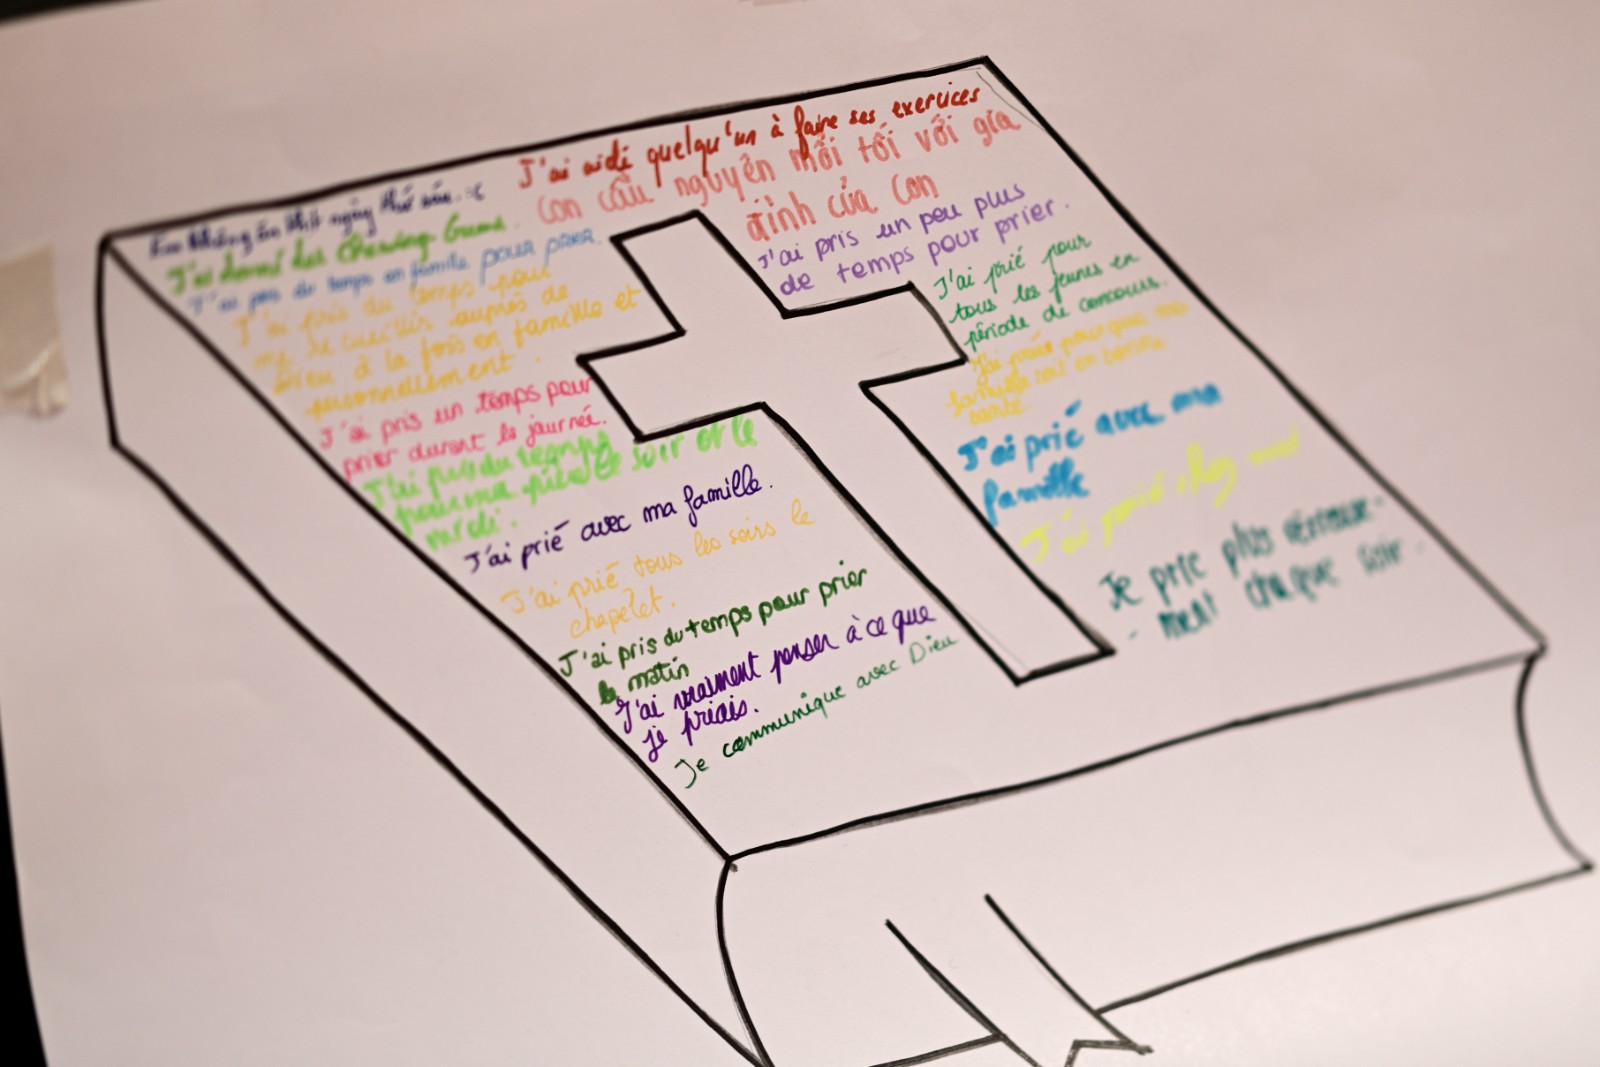 J'ai aidé quelqu'un à faire ses exercices
Con cầu nguyện mỗi tối với gia
đình của con
Em không ăn thịt ngày thứ sáu. :c
J'ai donné des Chewing-Gums.
J'ai pris du temps en famille pour prier.
J'ai pris du temps pour
me recueillir auprès de
Dieu à la fois en famille et
personnellement.
J'ai pris un temps pour
prier durant la journée.
J'ai pris du temps
pour ma le soir et le
mardi.
J'ai prié avec ma famille.
J'ai prié tous les soirs le
chapelet.
J'ai pris du temps pour prier
le matin
J'ai vraiment penser à ce que
je priais.
Je communique avec Dieu
J'ai pris un peu plus
de temps pour prier.
J'ai prié pour
tous les jeunes en
période de concours.
J'ai prié pour que ma
famille soit en bonne
santé
J'ai prié avec ma
famille
J'ai prié chez moi
Je prie plus sérieuse-
- ment chaque soir.